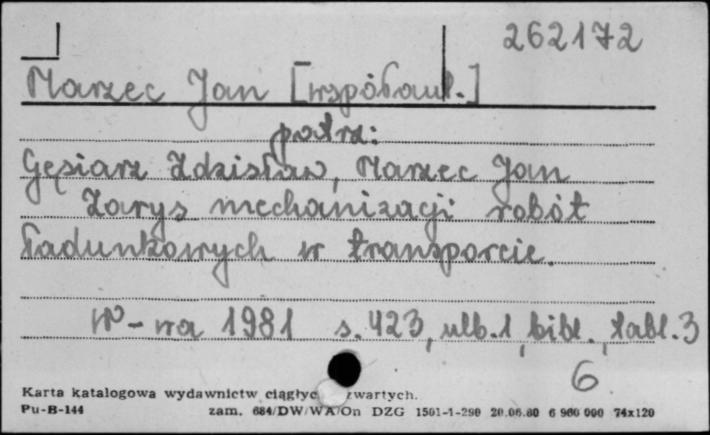 262172
Marzec Jan [współaut.]
patrz:
Gęsiarz Zdzisław, Marzec Jan
Zarys mechanizacji robót
ładunkowych w transporcie.
W-wa 1981 s. 423, ulb. 1, bibl., tabl. 3
6
Karta katalogowa wydawnictw ciągłyc zwartych.
Pu-B-144 zam. 684/DW/WA/On DZG 1501-1-290 20.06.80 6 960 000 74x120